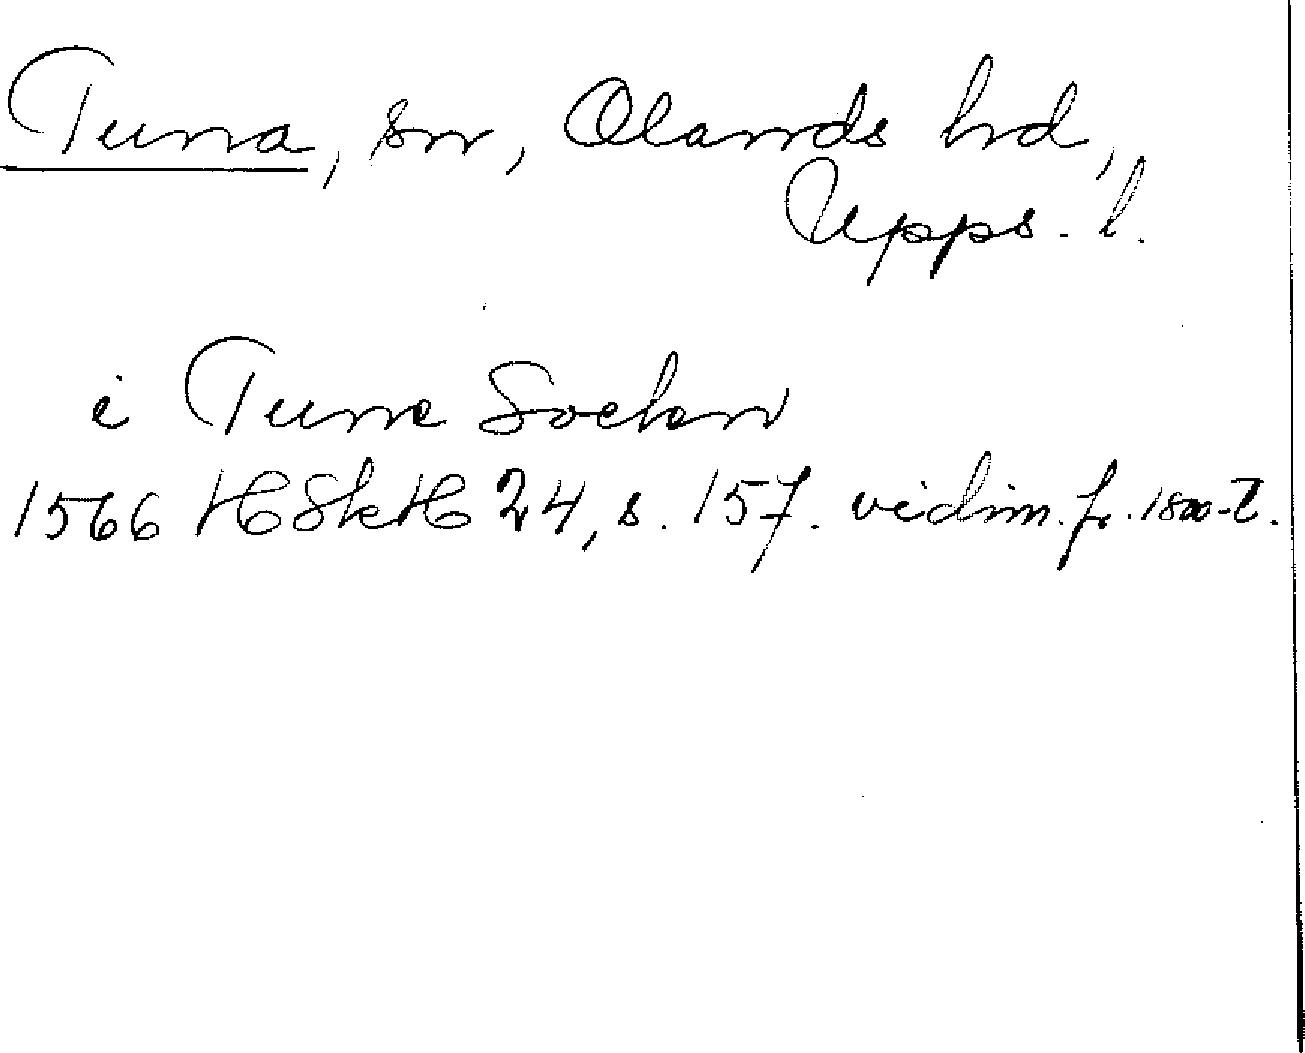 Tuna, sn, Olands hd,
Upps. l.
i Tuna Sochn
1566 HSkH 24, s. 157. vidim. fr. 1800-t.